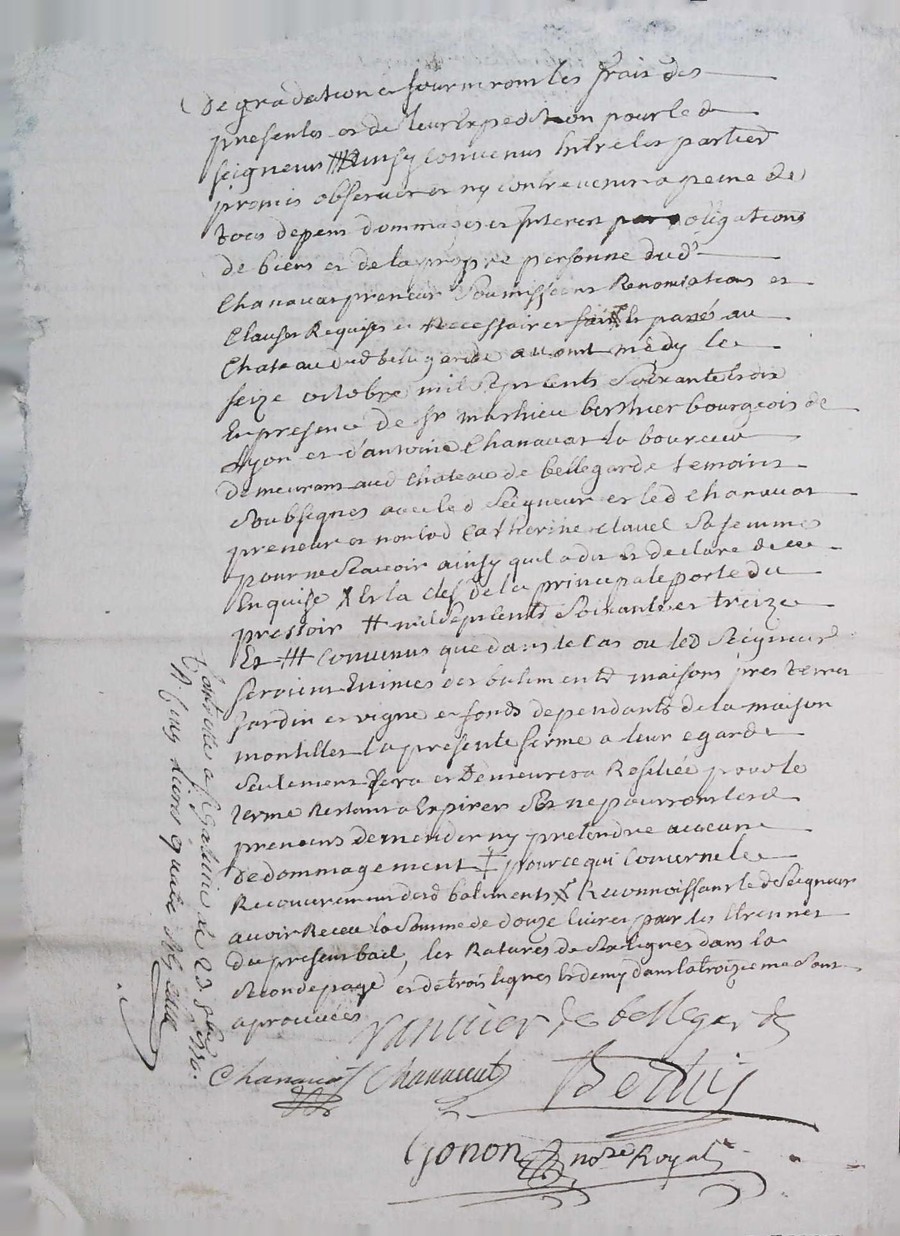 Degradation et fourniront les frais des
presentes et de leur Expedition pour led
seigneur ainsy convenus Entre les parties
promis observer et ny contrevenir a peine de
tous depens dommages et Interest par obligations
de biens et de la propre personne dud
Chanavat preneur Soumissions Renonciations et
Clauses Requises et Necessaires fait et passé au
Chateau dud bellegarde avant midy le
seize octobre mil sept cents soixante trois
En presence de Sr mathieu berthier bourgeois de
Lyon et d'antoine Chanavat laboureur
demeurant aud Chateau de bellegarde temoins
Soubsignes avec led Seigneur et led Chanavat
preneur et non lad Catherine clavel Sa femme
pour ne Scavoir ainsy quil a dit et declare de ce
Enquise X Et la clef de la principale porte du
pressoir # mil sept cents soixante et treize
Et convenus que dans le cas ou led Seigneur
seroient Evinces des batiments maisons pres terres
Jardin et vigne et fonds dependants de la maison
montillet la presente ferme a leur egard
Seulement Sera et Demeurera Resiliée pour le
terme Restant a Expirer Sans ne pourront lesd
preneurs demander ny pretendre aucune
dedommagement ‡ pour ce qui Concerne le
Recouvrement desd batiments X Reconnoissant led Seigneur
avoir Receu la Somme de douze livres pour les Etrennes
du present bail, les Ratures de Six lignes dans la
Seconde page et de trois lignes et demy dans la troizieme Sont
aprouvées
vannier de bellegarde
Chanavat Chanavat Berthier
Gonon nore Royal
Controllé a St Galmier le 23 8bre
R Cinq livres quatre